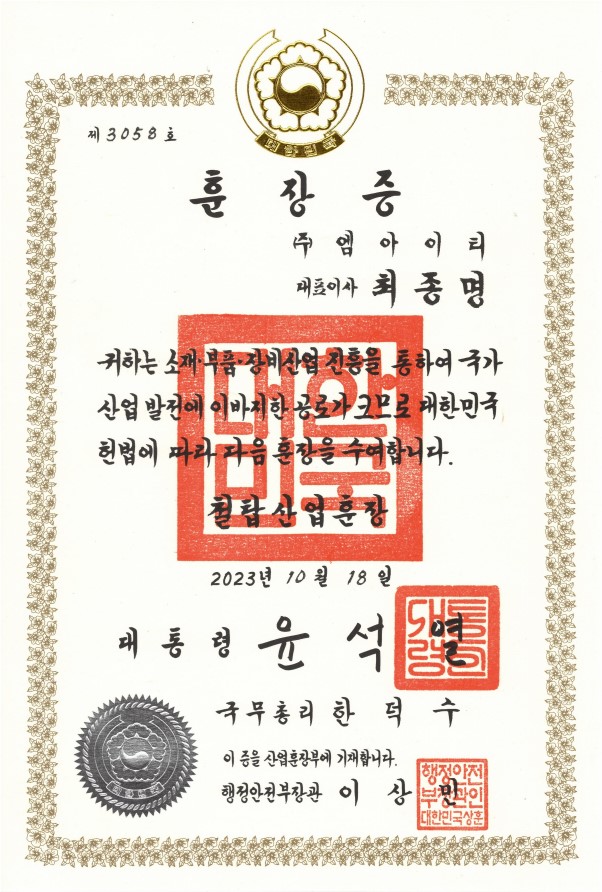 대한민국
제 3058 호
훈장증
(주) 엠아이티
대표이사 최종명
귀하는 소재·부품·장비산업 진흥을 통하여 국가
산업 발전에 이바지한 공로가 크므로 대한민국
헌법에 따라 다음 훈장을 수여합니다.
대한민국
철탑산업훈장
2023년 10월 18일
대통령 윤석열
국무총리 한덕수
이 증을 산업훈장부에 기재합니다.
행정안전부장관 이상민
행정안전
부장관인
대한민국상훈